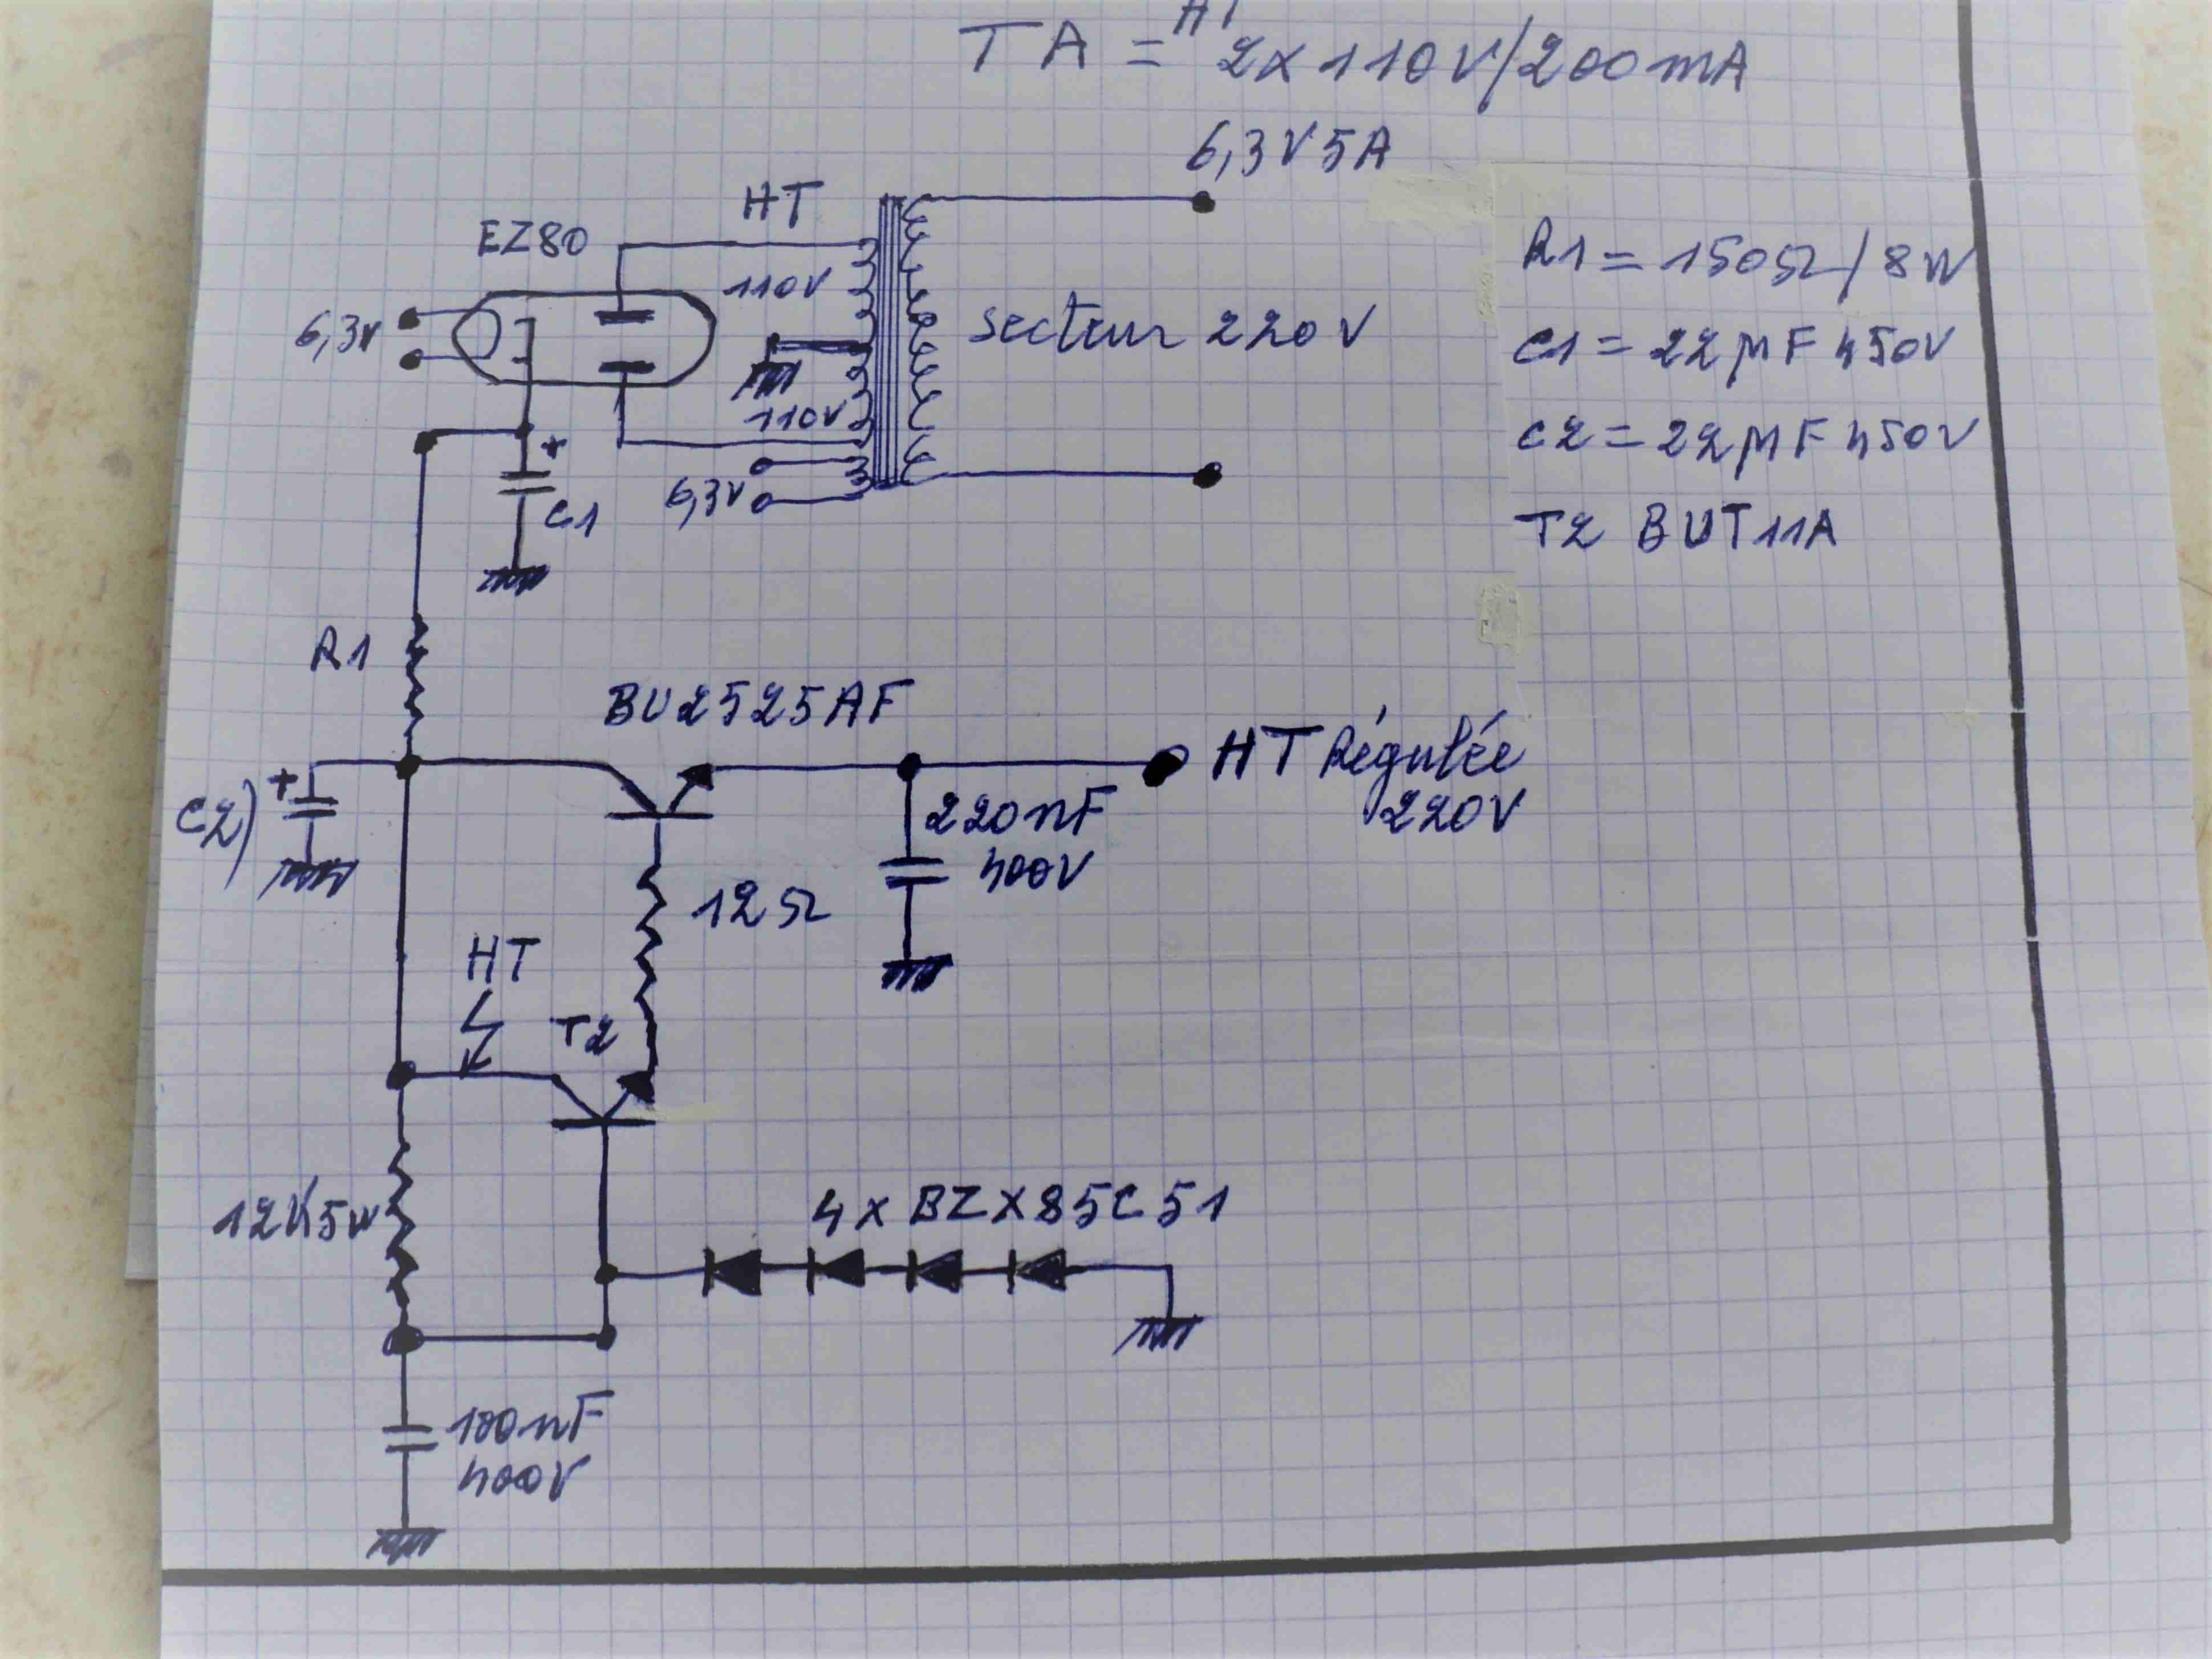 TA = HT 2x110V/200mA
6,3V5A
HT
EZ80
110V
R1 = 150Ω/8W
6,3V
secteur 220V
C1 = 22µF 450V
110V
C2 = 22µF 450V
+
6,3V
C1
T2 BUT11A
R1
BU2525AF
HT Régulée
220V
+
C2)
220nF
400V
12Ω
HT
T2
4x BZX85C51
12K5W
100nF
400V